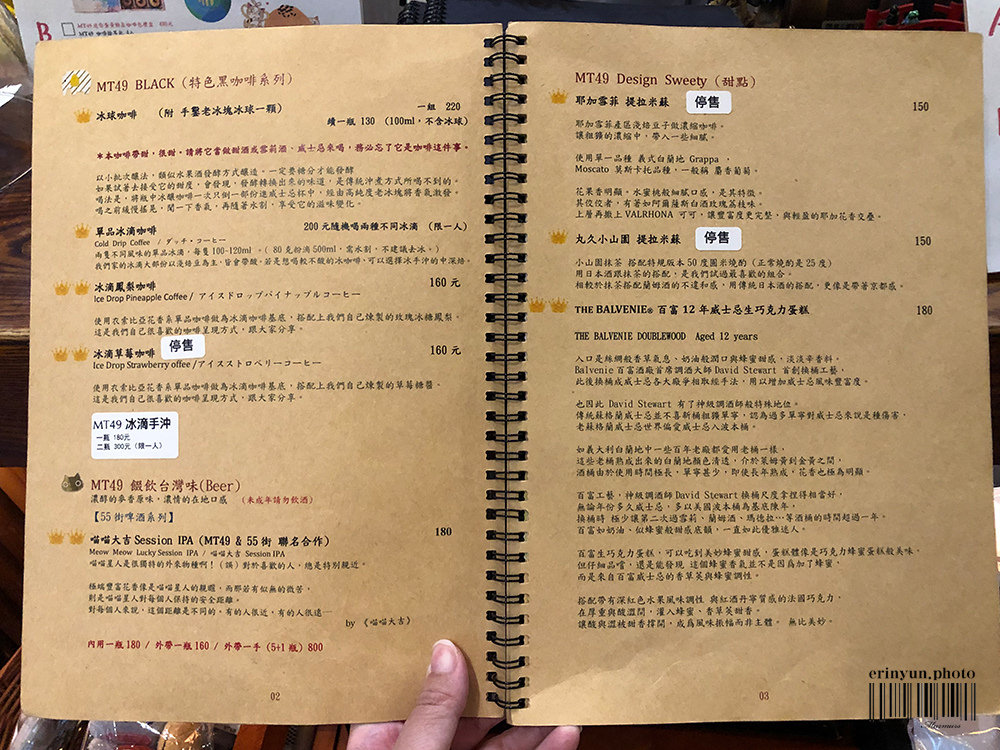 B
MT49 BLACK (特色黑咖啡系列)
冰球咖啡 (附 手鑿老冰塊冰球一顆) 一組 220
續一瓶 130 (100ml,不含冰球)
*本咖啡帶甜,很甜,請將它當做甜酒或雪莉酒、威士忌來喝,務必忘了它是咖啡這件事。
以小批次釀法,類似水果酒發酵方式釀造,一定要糖分才能發酵
如果試著去接受它的甜度,會發現,發酵轉換出來的味道,是傳統沖煮方式所喝不到的。
喝法是,將瓶中冰釀咖啡一次只倒一部份進威士忌杯中,經由高純度老冰塊將香氣激發。
喝之前緩慢搖晃,聞一下香氣,再隨著水割,享受它的滋味變化。
單品冰滴咖啡 200 元隨機喝兩種不同冰滴 (限一人)
Cold Drip Coffee / ダッチ・コーヒー
兩隻不同風味的單品冰滴,每隻100-120ml。(80克粉滴500ml,需水割,不建議去冰。)
我們家的冰滴大部份以淺焙豆為主,皆會帶酸。若是想喝較不酸的冰咖啡,可以選擇冰手沖的中深焙。
冰滴鳳梨咖啡 160 元
Ice Drop Pineapple Coffee / アイスドロップパイナップルコーヒー
使用衣索比亞花香系單品咖啡做為冰滴咖啡基底,搭配上我們自己煉製的玫瑰冰糖鳳梨。
這是我們自己很喜歡的咖啡呈現方式,跟大家分享。
冰滴草莓咖啡 停售 160 元
Ice Drop Strawberry offee / アイスストロベリーコーヒー
使用衣索比亞花香系單品咖啡做為冰滴咖啡基底,搭配上我們自己煉製的草莓糖醬。
這是我們自己很喜歡的咖啡呈現方式,跟大家分享。
MT49 冰滴手沖
一瓶 180元
二瓶 300元 (限一人)
MT49 餟飲台灣味(Beer)
濃醇的麥香原味,濃情的在地口感 (未成年請勿飲酒)
【55街啤酒系列】
喵喵大吉 Session IPA (MT49 & 55街 聯名合作) 180
Meow Meow Lucky Session IPA / 喵喵大吉 Session IPA
喵喵星人是很獨特的外來物種啊!(誤)對於喜歡的人,總是特別親近。
極端豐富花香像是喵喵星人的親暱,而那若有似無的微苦,
則是喵喵星人對每個人保持的安全距離。
對每個人來說,這個距離是不同的。有的人很近,有的人很遠…
by 《喵喵大吉》
內用一瓶180 / 外帶一瓶160 / 外帶一手 (5+1瓶) 800
02
MT49 Design Sweety (甜點)
耶加雪菲 提拉米蘇 停售 150
耶加雪菲產區淺焙豆子做濃縮咖啡。
讓粗獷的濃縮中,帶入一些細膩。
使用單一品種 義式白蘭地 Grappa ,
Moscato 莫斯卡托品種,一般稱 麝香葡萄。
花果香明顯,水蜜桃般細膩口感,是其特徵。
其佼佼者,有著如阿爾薩斯白酒玫瑰荔枝味。
上層再撒上VALRHONA 可可,讓豐富度更完整,與輕盈的耶加花香交疊。
丸久小山園 提拉米蘇 停售 150
小山園抹茶 搭配特規版本50度圓米燒酎(正常燒酎是25度)
用日本酒跟抹茶的搭配,是我們試過最喜歡的組合。
相較於抹茶搭配蘭姆酒的不違和感,用傳統日本酒的搭配,更像是帶著京都感。
THE BALVENIE® 百富 12 年威士忌生巧克力蛋糕 180
THE BALVENIE DOUBLEWOOD Aged 12 years
入口是絲綢般香草氣息、奶油般潤口與蜂蜜甜感,淡淡辛香料。
Balvenie 百富酒廠首席調酒大師 David Stewart 首創換桶工藝,
此後換桶成威士忌各大廠爭相取經手法,用以增加威士忌風味豐富度。
也因此 David Stewart 有了神級調酒師般特殊地位。
傳統蘇格蘭威士忌並不喜新桶粗獷單寧,認為過多單寧對威士忌來說是種傷害,
老蘇格蘭威士忌世界偏愛威士忌入波本桶。
如義大利白蘭地中一些百年老廠都愛用老桶一樣,
這些老桶熟成出來的白蘭地顏色清透,介於萊姆黃到金黃之間,
酒桶由於使用時間極長,單寧甚少,即使長年熟成,花香也極為明顯。
百富工藝,神級調酒師David Stewart換桶尺度拿捏得相當好,
無論年份多久威士忌,多以美國波本桶為基底陳年,
換桶時 極少讓第二次過雪莉、蘭姆酒、瑪德拉…等酒桶的時間超過一年。
百富如奶油、似蜂蜜般甜感底韻,一直如此優雅迷人。
百富生巧克力蛋糕,可以吃到美妙蜂蜜甜感,蛋糕體像是巧克力蜂蜜蛋糕般美味,
但仔細品嚐,還是能發現 這個蜂蜜香氣並不是因為加了蜂蜜,
而是來自百富威士忌的香草莢與蜂蜜調性。
搭配帶有深紅色水果風味調性 與紅酒丹寧質感的法國巧克力,
在厚重與酸澀間,灌入蜂蜜、香草莢甜香。
讓酸與澀被甜香撐開,成為風味振幅而非主體。 無比美妙。
03
erinyun.photo